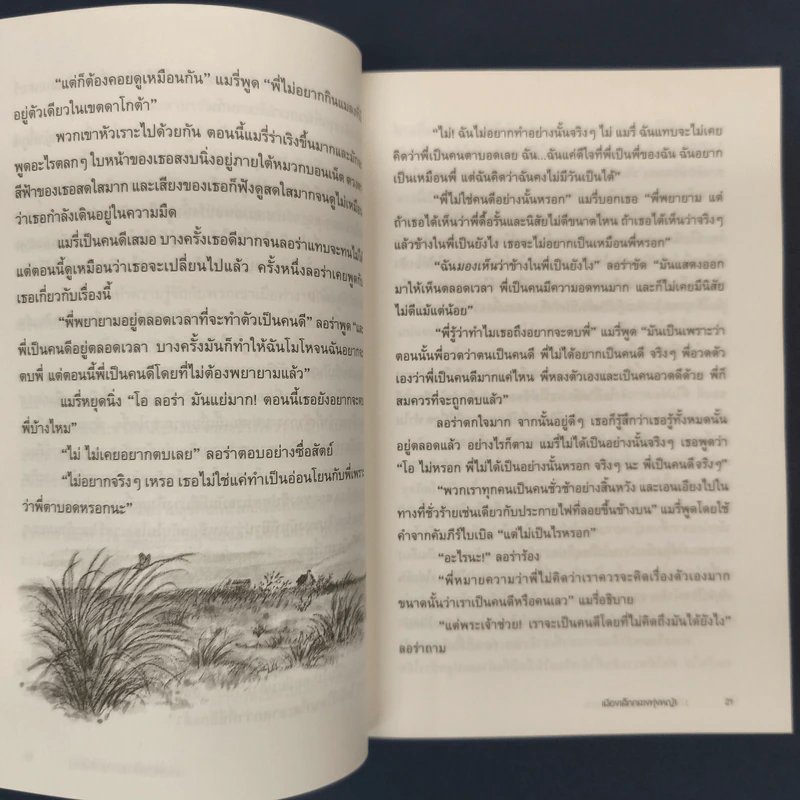 “แต่ก็ต้องคอยดูเหมือนกัน” แมรี่พูด “พี่ไม่อยากกินแมลง
อยู่ตัวเดียวในเขตดาโกต้า”
พวกเขาหัวเราะไปด้วยกัน ตอนนี้แมรี่ร่าเริงขึ้นมากและมัก
พูดอะไรตลกๆ ใบหน้าของเธอสงบนิ่งอยู่ภายใต้หมวกบอนเน็ต ดวงตา
สีฟ้าของเธอสดใสมาก และเสียงของเธอก็ฟังดูสดใสมากจนดูไม่เหมือน
ว่าเธอกำลังเดินอยู่ในความมืด
แมรี่เป็นคนดีเสมอ บางครั้งเธอดีมากจนลอร่าแทบจะทนไม่ได้
แต่ตอนนี้ดูเหมือนว่าเธอจะเปลี่ยนไปแล้ว ครั้งหนึ่งลอร่าเคยพูดกับ
เธอเกี่ยวกับเรื่องนี้
“พี่พยายามอยู่ตลอดเวลาที่จะทำตัวเป็นคนดี” ลอร่าพูด “และ
พี่เป็นคนดีอยู่ตลอดเวลา บางครั้งมันก็ทำให้ฉันโมโหจนฉันอยากจะ
ตบพี่ แต่ตอนนี้พี่เป็นคนดีโดยที่ไม่ต้องพยายามแล้ว”
แมรี่หยุดนิ่ง “โอ ลอร่า มันแย่มาก! ตอนนี้เธอยังอยากจะตบ
พี่บ้างไหม”
“ไม่ ไม่เคยอยากตบเลย” ลอร่าตอบอย่างซื่อสัตย์
“ไม่อยากจริงๆ เหรอ เธอไม่ใช่แค่ทำเป็นอ่อนโยนกับพี่เพราะ
ว่าพี่ตาบอดหรอกนะ”
“ไม่! ฉันไม่อยากทำอย่างนั้นจริงๆ ไม่ แมรี่ ฉันแทบจะไม่เคย
คิดว่าพี่เป็นคนตาบอดเลย ฉัน...ฉันแค่ดีใจที่พี่เป็นพี่ของฉัน ฉันอยาก
เป็นเหมือนพี่ แต่ฉันคิดว่าฉันคงไม่มีวันเป็นได้”
“พี่ไม่ใช่คนดีอย่างนั้นหรอก” แมรี่บอกเธอ “พี่พยายาม แต่
ถ้าเธอได้เห็นว่าพี่ดื้อรั้นและนิสัยไม่ดีขนาดไหน ถ้าเธอได้เห็นว่าจริงๆ
แล้วข้างในพี่เป็นยังไง เธอจะไม่อยากเป็นเหมือนพี่หรอก”
“ฉันมองเห็นว่าข้างในพี่เป็นยังไง” ลอร่าขัด “มันแสดงออก
มาให้เห็นตลอดเวลา พี่เป็นคนมีความอดทนมาก และก็ไม่เคยมีนิสัย
ไม่ดีแม้แต่น้อย”
“พี่รู้ว่าทำไมเธอถึงอยากจะตบพี่” แมรี่พูด “มันเป็นเพราะว่า
ตอนนั้นพี่อวดว่าตนเป็นคนดี พี่ไม่ได้อยากเป็นคนดี จริงๆ พี่อวดตัว
เองว่าพี่เป็นคนดีมากแค่ไหน พี่หลงตัวเองและเป็นคนอวดดีด้วย พี่ก็
สมควรที่จะถูกตบแล้ว”
ลอร่าตกใจมาก จากนั้นอยู่ดีๆ เธอก็รู้สึกว่าเธอรู้ทั้งหมดนั้น
อยู่ตลอดแล้ว อย่างไรก็ตาม แมรี่ไม่ได้เป็นอย่างนั้นจริงๆ เธอพูดว่า
“โอ ไม่หรอก พี่ไม่ได้เป็นอย่างนั้นหรอก จริงๆ นะ พี่เป็นคนดีจริงๆ”
“พวกเราทุกคนเป็นคนชั่วช้าอย่างสิ้นหวัง และเอนเอียงไปใน
ทางที่ชั่วร้ายเช่นเดียวกับประกายไฟที่ลอยขึ้นข้างบน” แมรี่พูดโดยใช้
คำจากคัมภีร์ไบเบิล “แต่ไม่เป็นไรหรอก”
“อะไรนะ!” ลอร่าร้อง
“พี่หมายความว่าพี่ไม่คิดว่าเราควรจะคิดเรื่องตัวเองมาก
ขนาดนั้นว่าเราเป็นคนดีหรือคนเลว” แมรี่อธิบาย
“แต่พระเจ้าช่วย! เราจะเป็นคนดีโดยที่ไม่คิดถึงมันได้ยังไง”
ลอร่าถาม
เมืองเล็กกลางทุ่งหญ้า 21